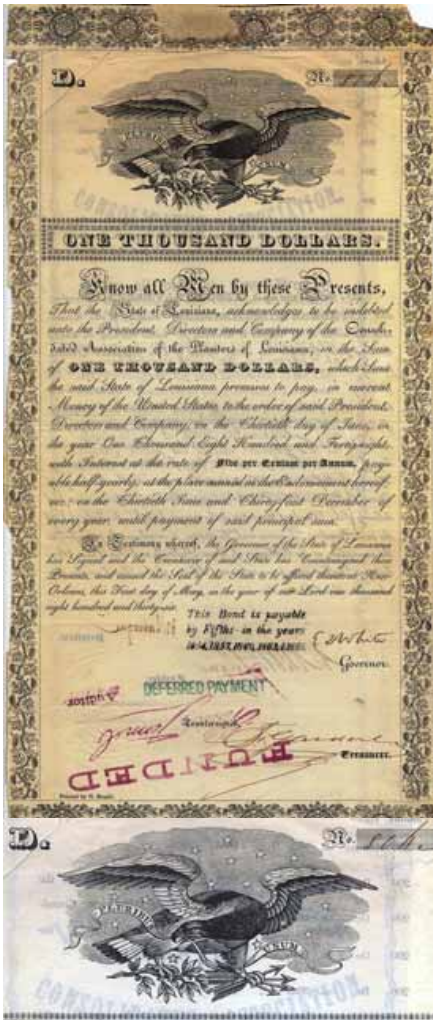 D. No. 804.
PLURIBUS UNUM
CONSOLIDATED ASSOCIATION
ONE THOUSAND DOLLARS.
Know all Men by these Presents,
That the State of Louisiana, acknowledges to be indebted
unto the President, Directors and Company of the Consoli-
dated Association of the Planters of Louisiana, in the Sum
of ONE THOUSAND DOLLARS, which Sum
the said State of Louisiana promises to pay, in current
Money of the United States, to the order of said President,
Directors and Company, on the Thirtieth day of June, in
the year One Thousand Eight Hundred and Forty eight,
with Interest at the rate of Five per Centum per Annum, pay-
able half yearly, at the place named in the Endorsement hereof
viz: on the Thirtieth June and Thirty first December of
every year, until payment of said principal sum.
In Testimony whereof, the Governor of the State of Louisiana
has Signed and the Treasurer of said State has Countersigned these
Presents, and caused the Seal of the State to be affixed thereto at New-
Orleans, this First day of May, in the year of our Lord one thousand
eight hundred and thirty-six.
This Bond is payable
by Fifths in the years
E D White
Governor.
Auditor
DEFERRED PAYMENT
Countersigned,
Treasurer.
FUNDED
D. No. 804.
PLURIBUS UNUM
CONSOLIDATED ASSOCIATION